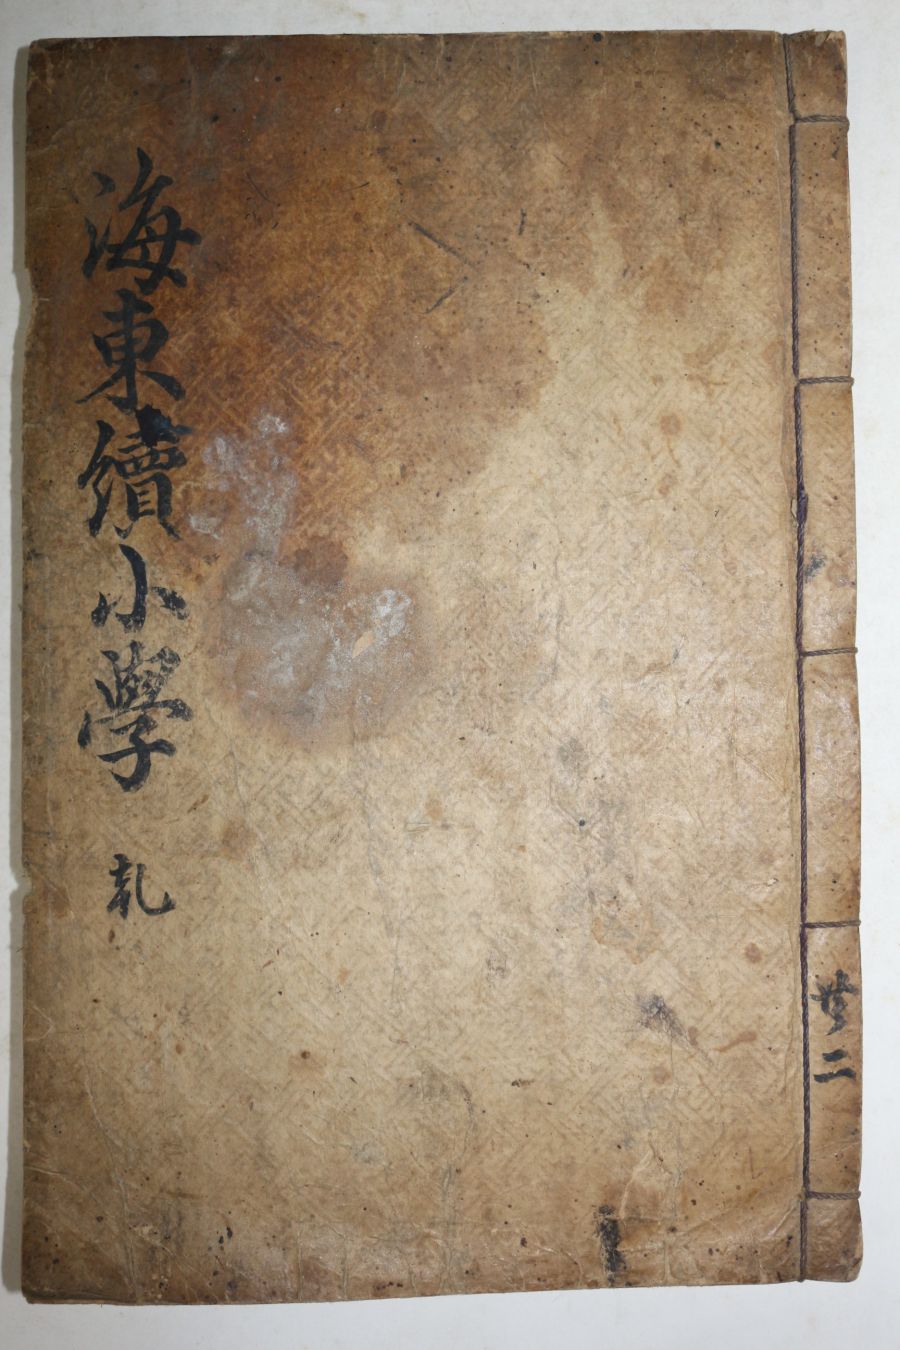 海東續小學 乾
共二